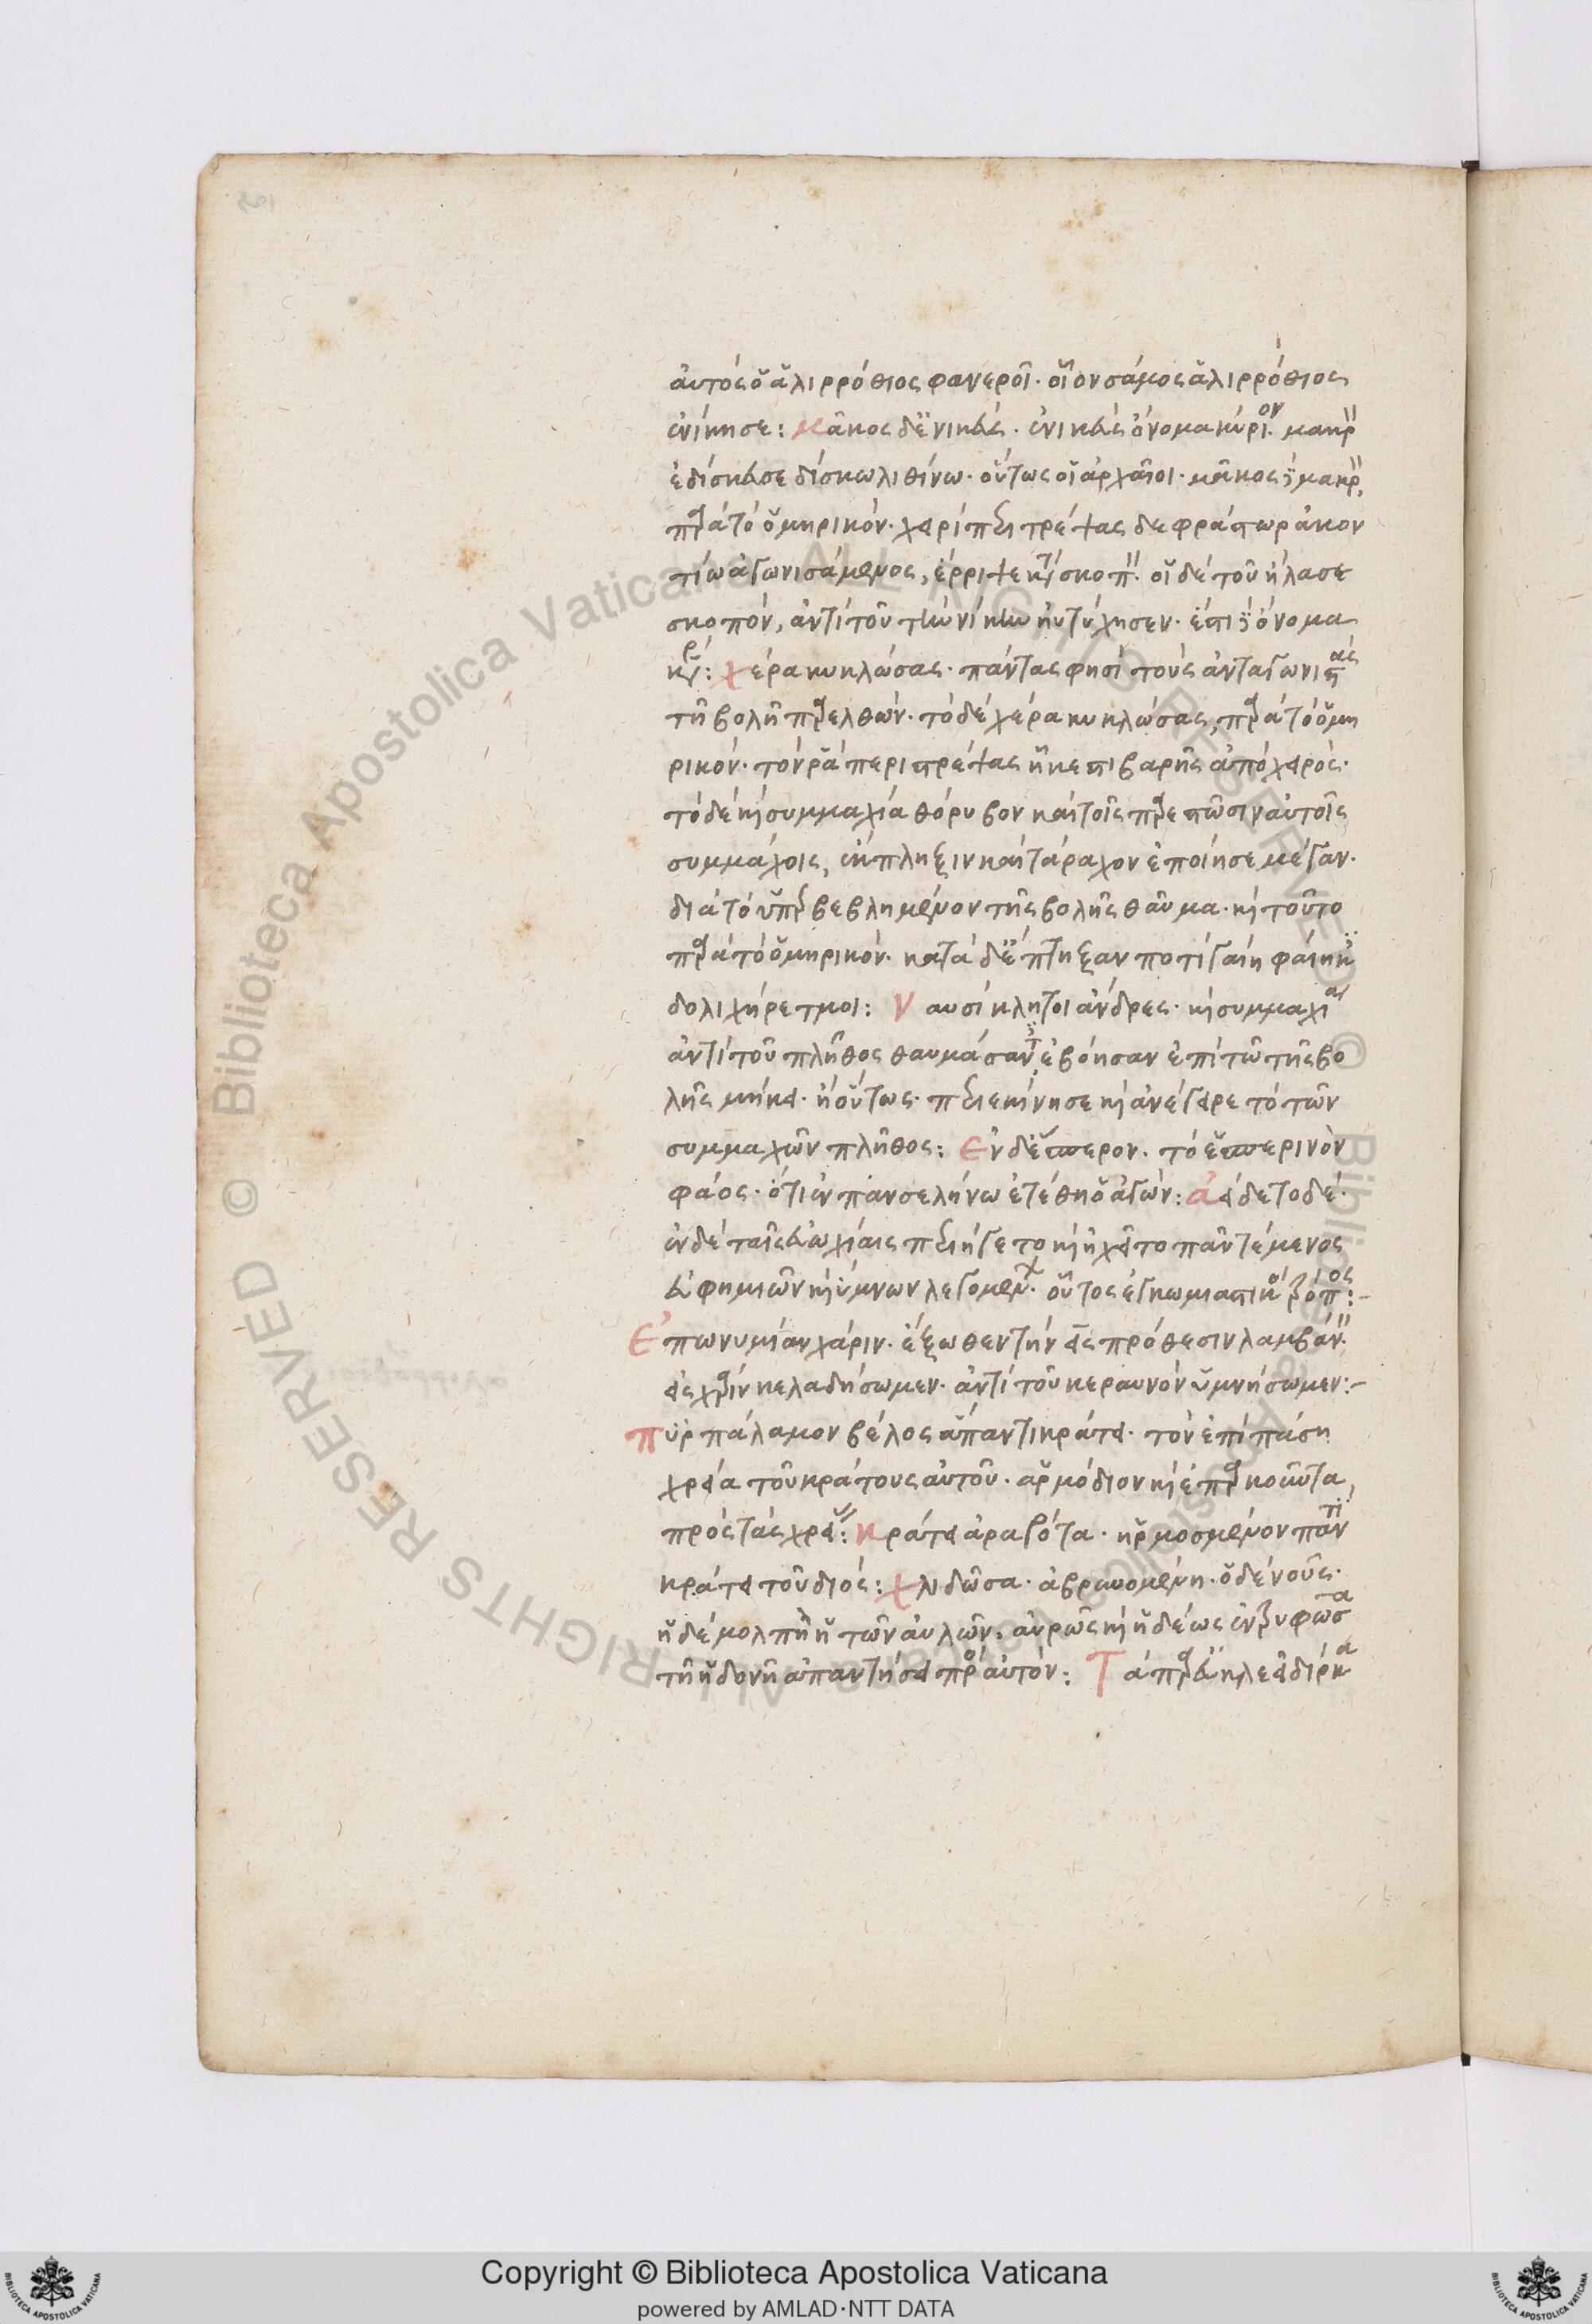 αὐτὸς ὁ ἁλιρρόθιος φανεροῖ· οἷον σάμος ἁλιρρόθιος
ἐνίκησε: μᾶκος δὲ νικεὺς· ἐνικεὺς ὄνομα κύριον· μακρ
ἐδίσκευσε δίσκω λιθίνω· οὕτως οἱ ἀρχαῖοι· μᾶκος μακρ,
παρὰ τὸ ὁμηρικόν· χειρὶ περιστρέψας δὲ φράστωρ ἀκον
τίω ἀγωνισάμενος, ἔρριψε κτ σκοπ· οἱ δὲ τοῦ ἤλασε
σκοπόν, ἀντὶ τοῦ τὴν νίκην ηὐτύχησεν· ἔστι ὄνομα
κύρ: χέρα κυκλώσας· πάντας φησὶ τοὺς ἀνταγωνιστὰς
τῆ βολῆ παρελθών· τὸ δὲ χέρα κυκλώσας, παρὰ τὸ ὁμη
ρικόν· τόν ῥα περιστρέψας ἧκε στιβαρῆς ἀπὸ χειρός·
τὸ δὲ καὶ συμμαχία θόρυβον καὶ τοῖς παρεστῶσιν αὐτοῖς
συμμάχοις, ἔκπληξιν καὶ τάραχον ἐποίησε μέγαν·
διὰ τὸ ὑπερβεβλημένον τῆς βολῆς θαῦμα· καὶ τοῦτο
παρὰ τὸ ὁμηρικόν· κατὰ δ' ἔπτηξαν ποτὶ γαίη φαίηκ
δολιχήρετμοι: ναυσίκλητοι ἄνδρες· καὶ συμμαχία
ἀντὶ τοῦ πλῆθος θαυμάσαντ ἐβόησαν ἐπὶ τῶ τῆς βο
λῆς μήκει· ἢ οὕτως· περιεκίνησε καὶ ἀνέγειρε τὸ τῶν
συμμαχῶν πλῆθος: Ἐν δ' ἕσπερον· τὸ ἑσπερινὸν
φάος· ὅτι ἐν πανσελήνω ἐτέθη ὁ ἀγών: ἀείδετο δέ·
ἐν δὲ ταῖς εὐωχίαις περιήγετο καὶ ἠχεῖτο πᾶν τέμενος
εὐφημιῶν καὶ ὕμνων λεγομένων· οὗτος ἐγκωμιαστικὸς τρόπος:-
Ἐπωνυμίαν χάριν· ἔξωθεν τὴν εἰς πρόθεσιν λαμβάν
εἰς χάριν κελαδήσωμεν· ἀντὶ τοῦ κεραυνὸν ὑμνήσωμεν:-
πυρπάλαμον βέλος ἅπαντι κράτει· τὸν ἐπὶ πάση
χρεία τοῦ κράτους αὐτοῦ· ἁρμόδιον καὶ ἐπαρκοῦντα,
πρὸς τὰς χρεί: κράτει ἀραρότα· ἡρμοσμένον παντὶ
κράτει τοῦ διός: χλιδῶσα· ἁβρυνομένη· ὁ δὲ νοῦς·
ἡ δὲ μολπὴ ἡ τῶν αὐλῶν· ἁβρῶς καὶ ἡδέως ἐντρυφῶσα
τῆ ἡδονῆ ἀπαντήσει πρὸς αὐτόν: Τὰ παρ' εὐκλέϊ δίρκα